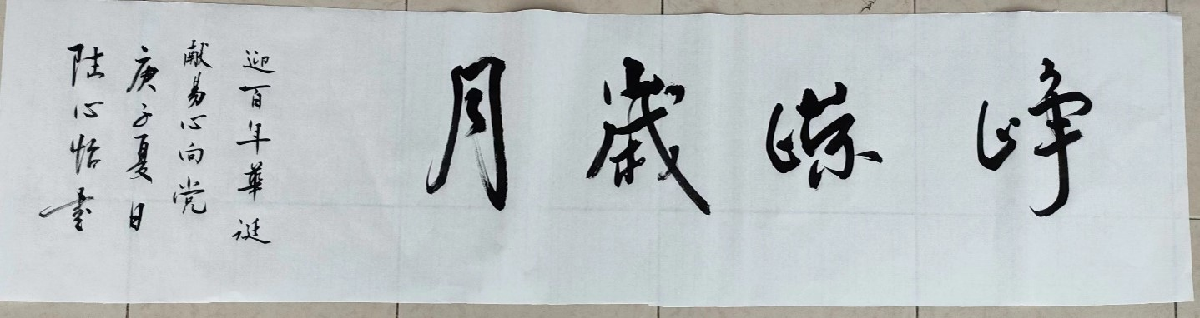 峥嵘歲月
迎百年華诞
献易心向党
庚子夏日
陆心怡书